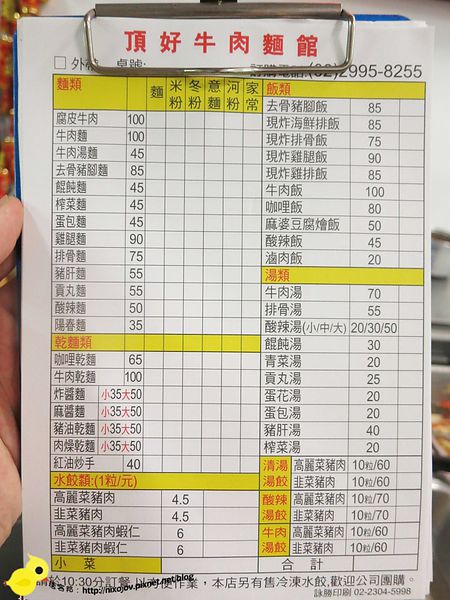 頂好牛肉麵館
□外帶 桌號:
訂購電話:(02)2995-8255
麵類 麵 米粉 冬粉 意麵 河粉 家常
腐皮牛肉 100
牛肉麵 100
牛肉湯麵 45
去骨豬腳麵 85
餛飩麵 45
榨菜麵 45
蛋包麵 45
雞腿麵 90
排骨麵 75
豬肝麵 55
貢丸麵 55
酸辣麵 50
陽春麵 35
乾麵類
咖哩乾麵 65
牛肉乾麵 100
炸醬麵 小35大50
麻醬麵 小35大50
豬油乾麵 小35大50
肉燥乾麵 小35大50
紅油炒手 40
水餃類:(1粒/元)
高麗菜豬肉 4.5
韭菜豬肉 4.5
高麗菜豬肉蝦仁 6
韭菜豬肉蝦仁 6
小菜
飯類
去骨豬腳飯 85
現炸海鮮排飯 85
現炸排骨飯 75
現炸雞腿飯 90
現炸雞排飯 85
牛肉飯 100
咖哩飯 80
麻婆豆腐燴飯 50
酸辣飯 45
滷肉飯 20
湯類
牛肉湯 70
排骨湯 55
酸辣湯(小/中/大) 20/30/50
餛飩湯 30
青菜湯 20
貢丸湯 25
蛋花湯 20
蛋包湯 20
豬肝湯 40
榨菜湯 20
清湯湯餃 高麗菜豬肉 10粒/60
韭菜豬肉 10粒/60
酸辣湯餃 高麗菜豬肉 10粒/70
韭菜豬肉 10粒/70
牛肉湯餃 高麗菜豬肉 10粒/60
韭菜豬肉 10粒/60
合計
於10:30分訂餐,以方便作業,本店另有售冷凍水餃,歡迎公司團購。
詠勝印刷 02-2304-5998
http://nixojov.pixnet.net/blog